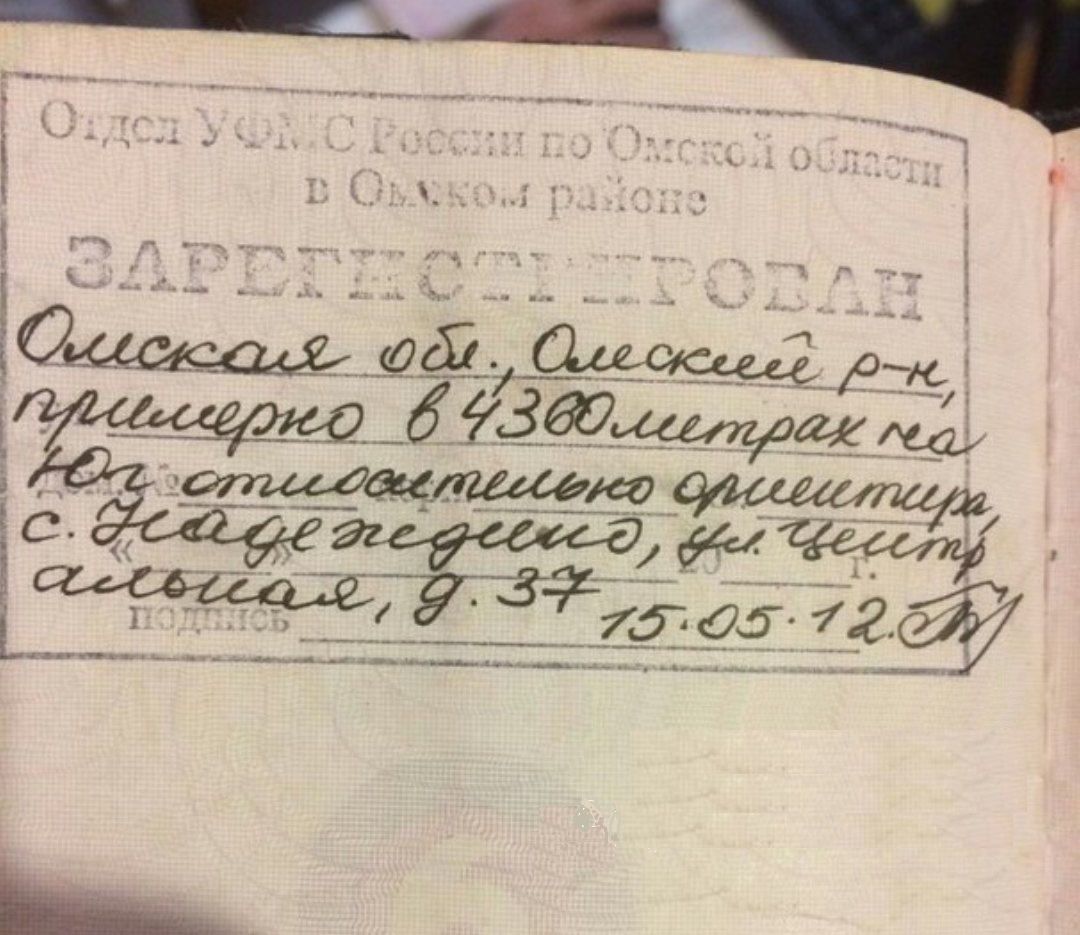 Отдел УФМС России по Омской области
в Омском районе
ЗАРЕГИСТРИРОВАН
Омская обл., Омский р-н,
примерно в 4360 метрах на
Юг относительно ориентира,
с. Надеждино, ул. Центр
альная, д. 37
« » 20 г.
подпись
15.05.12.